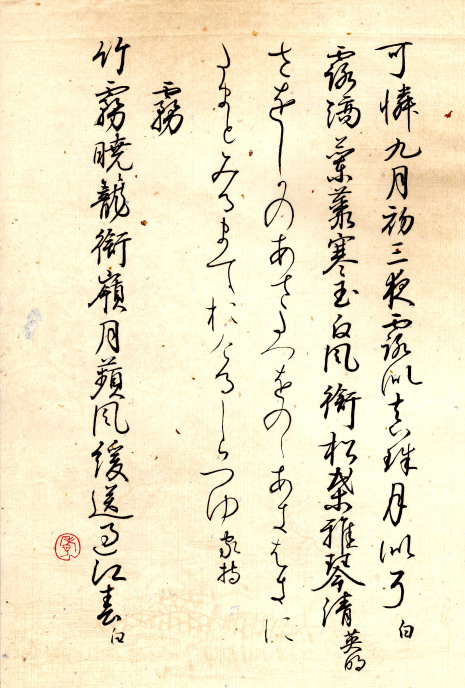 可憐九月初三夜露似真珠月似弓 白
露滴蘭叢寒玉白風銜松葉雅琴清 英明
さをしかのあさたつをのゝあきはきに
たまとみるまておけるしらつゆ 家持
霧
竹霧暁籠銜嶺月蘋風緩送過江春 白